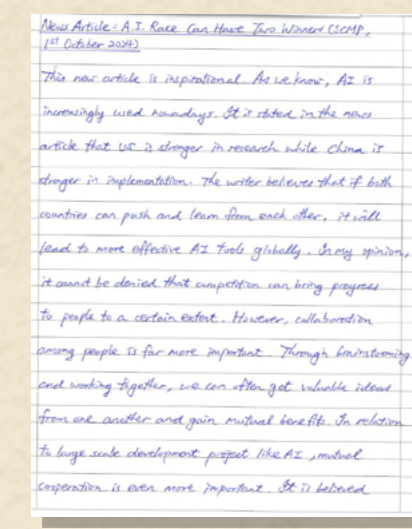 News Article: A.I. Race Can Have Two Winners (SCMP,
1ST October 2024)
This news article is inspirational. As we know, AI is
increasingly used nowadays. It is stated in the news
article that US is stronger in research while China is
stronger in implementation. The writer believes that if both
countries can push and learn from each other, it will
lead to more effective AI tools globally. In my opinion,
it cannot be denied that competition can bring progress
to people to a certain extent. However, collaboration
among people is far more important. Through brainstorming
and working together, we can often get valuable ideas
from one another and gain mutual benefits. In relation
to large scale development project like AI, mutual
cooperation is even more important. It is believed